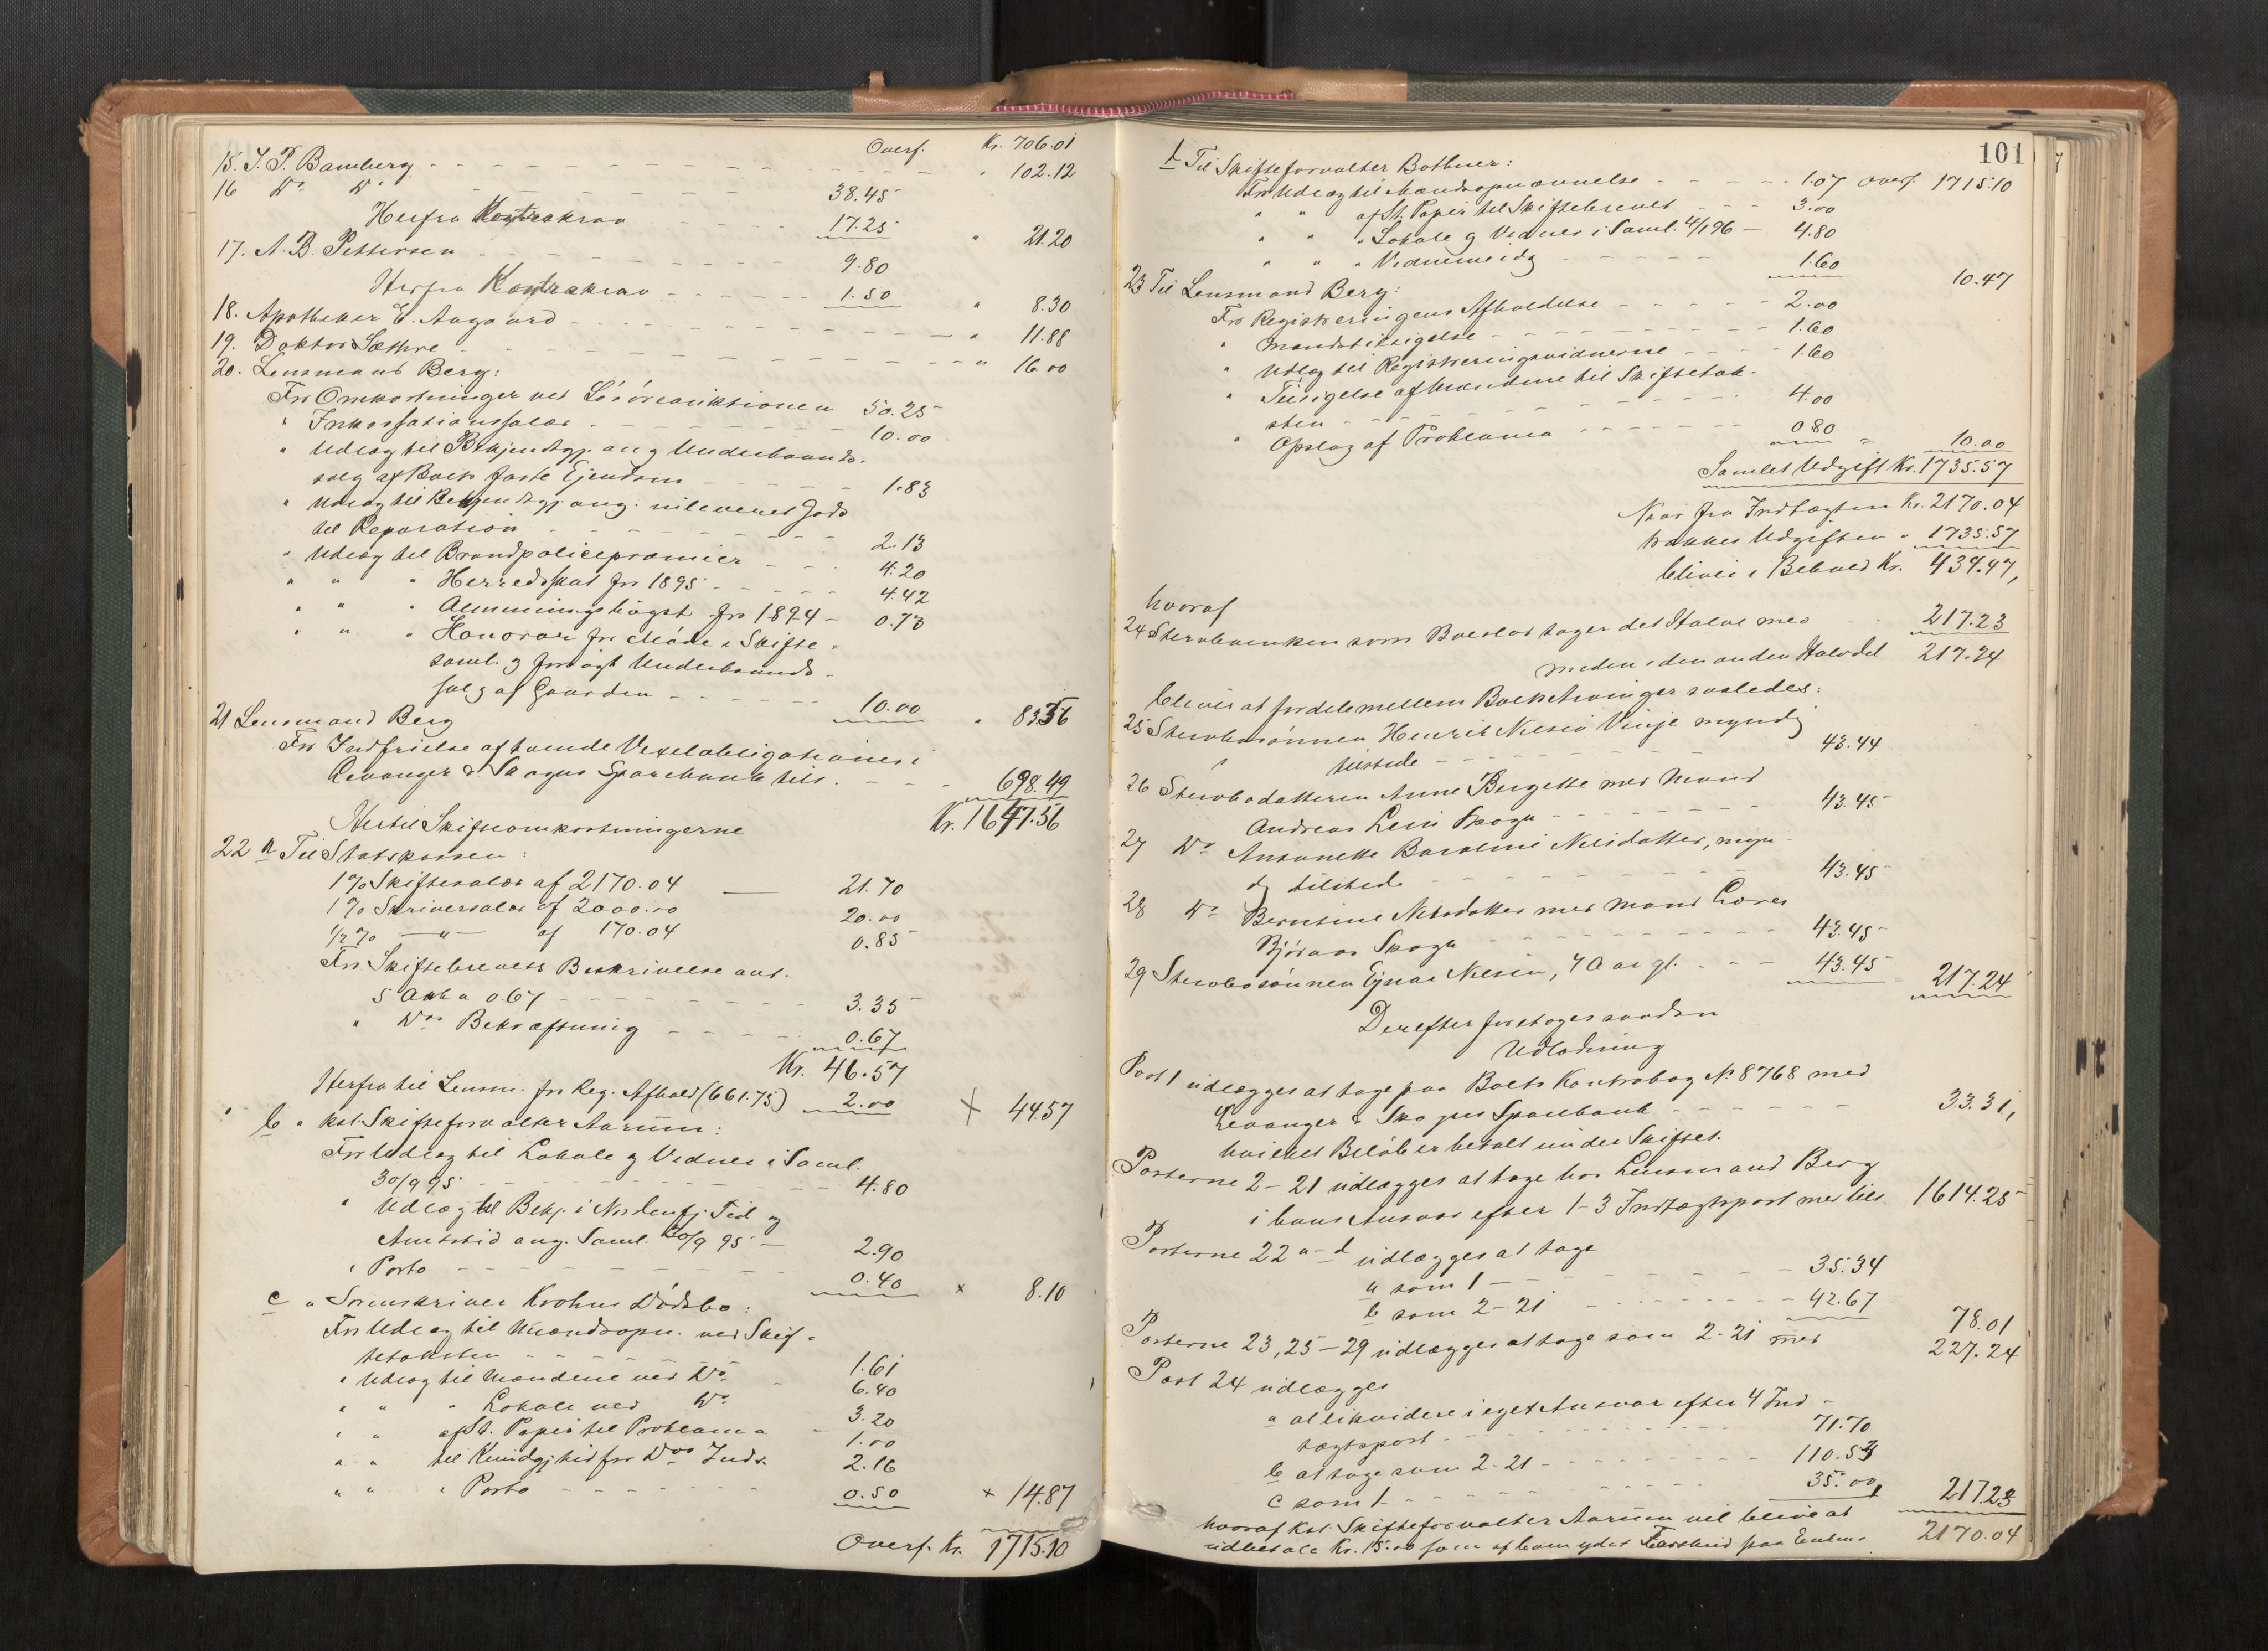 Overf. Kr. 706.01
15. J. P. Bamberg - - - " 102.12
16 Do Do - - - 38.45
Herfra Kontrakrav - - - 17.25 " 21.20
17. A. B. Pettersen - - - 9.80
Herfra Kontrakrav - - - 1.50 " 8.30
18. Apotheker E. Aagaard - - - " 11.88
19. Doktor Sæthre - - - " 16.00
20. Lensmand Berg:
For Omkostninger ved Løsøreauktionen 50.25
" Inkassationssalær - - - 10.00
" Udlæg til Bekjendtgj. ang Underhaands-
salg af Boets faste Ejendom - - - 1.83
" Udlæg til Bekjendtgj. ang. indleveret Gods
til Reparation - - - 2.13
" Udlæg til Brandpolicepræmier - - - 4.20
" " " Herredsskat for 1895 - - - 4.42
" " " Almenningsbygsl for 1894 - 0.73
" " " Honorar for Møde i Skifte-
saml. og forsøgt Underhaands-
salg af Gaarden - - - 10.00 " 83.56
21 Lensmand Berg
For Indfrielse af tvende Vexelobligationer i
Levanger & Skogns Sparebank tils. - - - 698.49
Hertil Skifteomkostningerne Kr. 1647.56
22 a Til Statskassen:
1% Skiftesalær af 2170.04 — 21.70
1% Skriversalær af 2000.00 20.00
1/2 % —"— af 170.04 0.85
For Skiftebrevets Beskrivelse ant.
5 Ark a 0.67 - - - 3.35
" Dos Bekræftning - - - 0.67
Kr. 46.57
Herfra til Lensm. for Reg. Afhold (661.75) 2.00 × 44.57
b " kst. Skifteforvalter Aarum:
For Udlæg til Lokale og Vidner i Saml.
30/9 95 - - - 4.80
" Udlæg til Bekj. i Nordenfj. Tid og
Amtstid ang. Saml. 30/9 95 — 2.90
" Porto - - - 0.40 × 8.10
c " Sorenskriver Krohns Dødsbo:
For Udlæg til Mændsopn. ved Skif-
tetaksten - - - 1.61
" Udlæg til Mændene ved Do - 6.40
" " " Lokale ved Do 3.20
" " af St. Papir til Proklama - 1.00
" " til Kundgj.tid for Dos Inds. 2.16
" " " Porto - - - 0.50 × 14.87
Overf. Kr. 1715.10
101
d Til Skifteforvalter Bothner:
For Udlæg til Mændsopnævnelse - - - 1.07 Overf. 1715.10
" " af St. Papir til Skiftebrevet - - - 3.00
" " " Lokale og Vidner i Saml. 4/1 96 — 4.80
" " " Vidner idag - - - 1.60 10.47
23 Til Lensmand Berg:
For Registreringens Afholdelse - - - 2.00
" Mændstilsigelse - - - 1.60
" Udlæg til Registreringsvidnerne - - - 1.60
" Tilsigelse af Mændene til Skiftetak-
sten - - - 4.00
" Opslag af Proklama - - - 0.80 " 10.00
Samlet Udgift Kr. 1735.57
Naar fra Indtægten Kr. 2170.04
trækkes Udgiften " 1735.57
bliver i Behold Kr. 434.47,
hvoraf
24 Sterboenken som Boeslod tager det Halve med 217.23
medens den anden Halvdel 217.24
bliver at fordele mellem Boets Arvinger saaledes:
25 Sterbosønnen Henrik Nilsen Vinje myndig
tilstede - - - 43.44
26 Sterbodatteren Anne Bergette med Mand
Andreas Levi Skogn - - - 43.45
27 Do Antonette Baroline Nilsdatter, myn-
dig tilstede - - - 43.45
28 Do Berntine Nilsdatter med Mand Lores
Bjørnaas Skogn - - - 43.45
29 Sterbosønnen Ejnar Nilsen, 7 Aar gl. - - - 43.45 217.24
Derefter foretoges saadan
Udlodning
Post 1 udlægges at tage paa Boets Kontrabog No 8768 med
Levanger & Skogns Sparebank - - - 33.31,
hvilket Beløb er betalt under Skiftet.
Posterne 2-21 udlægges at tage hos Lensmand Berg
i hans Ansvar efter 1-3 Indtægtspost med tils 1614.25
Posterne 22 a-d udlægges at tage
a som 1 - - - 35.34
b som 2-21 - - - 42.67 78.01
Posterne 23, 25-29 udlægges at tage som 2-21 med 227.24
Post 24 udlægges
a at likvidere i eget Ansvar efter 4 Ind-
tægtspost - - - 71.70
b at tage som 2-21 - - - 110.53
c som 1 - - - 35.00, 217.23
hvoraf kst. Skifteforvalter Aarum vil blive at 2170.04
udbetale Kr. 15.00 som af ham ydet Forskud paa Enkens